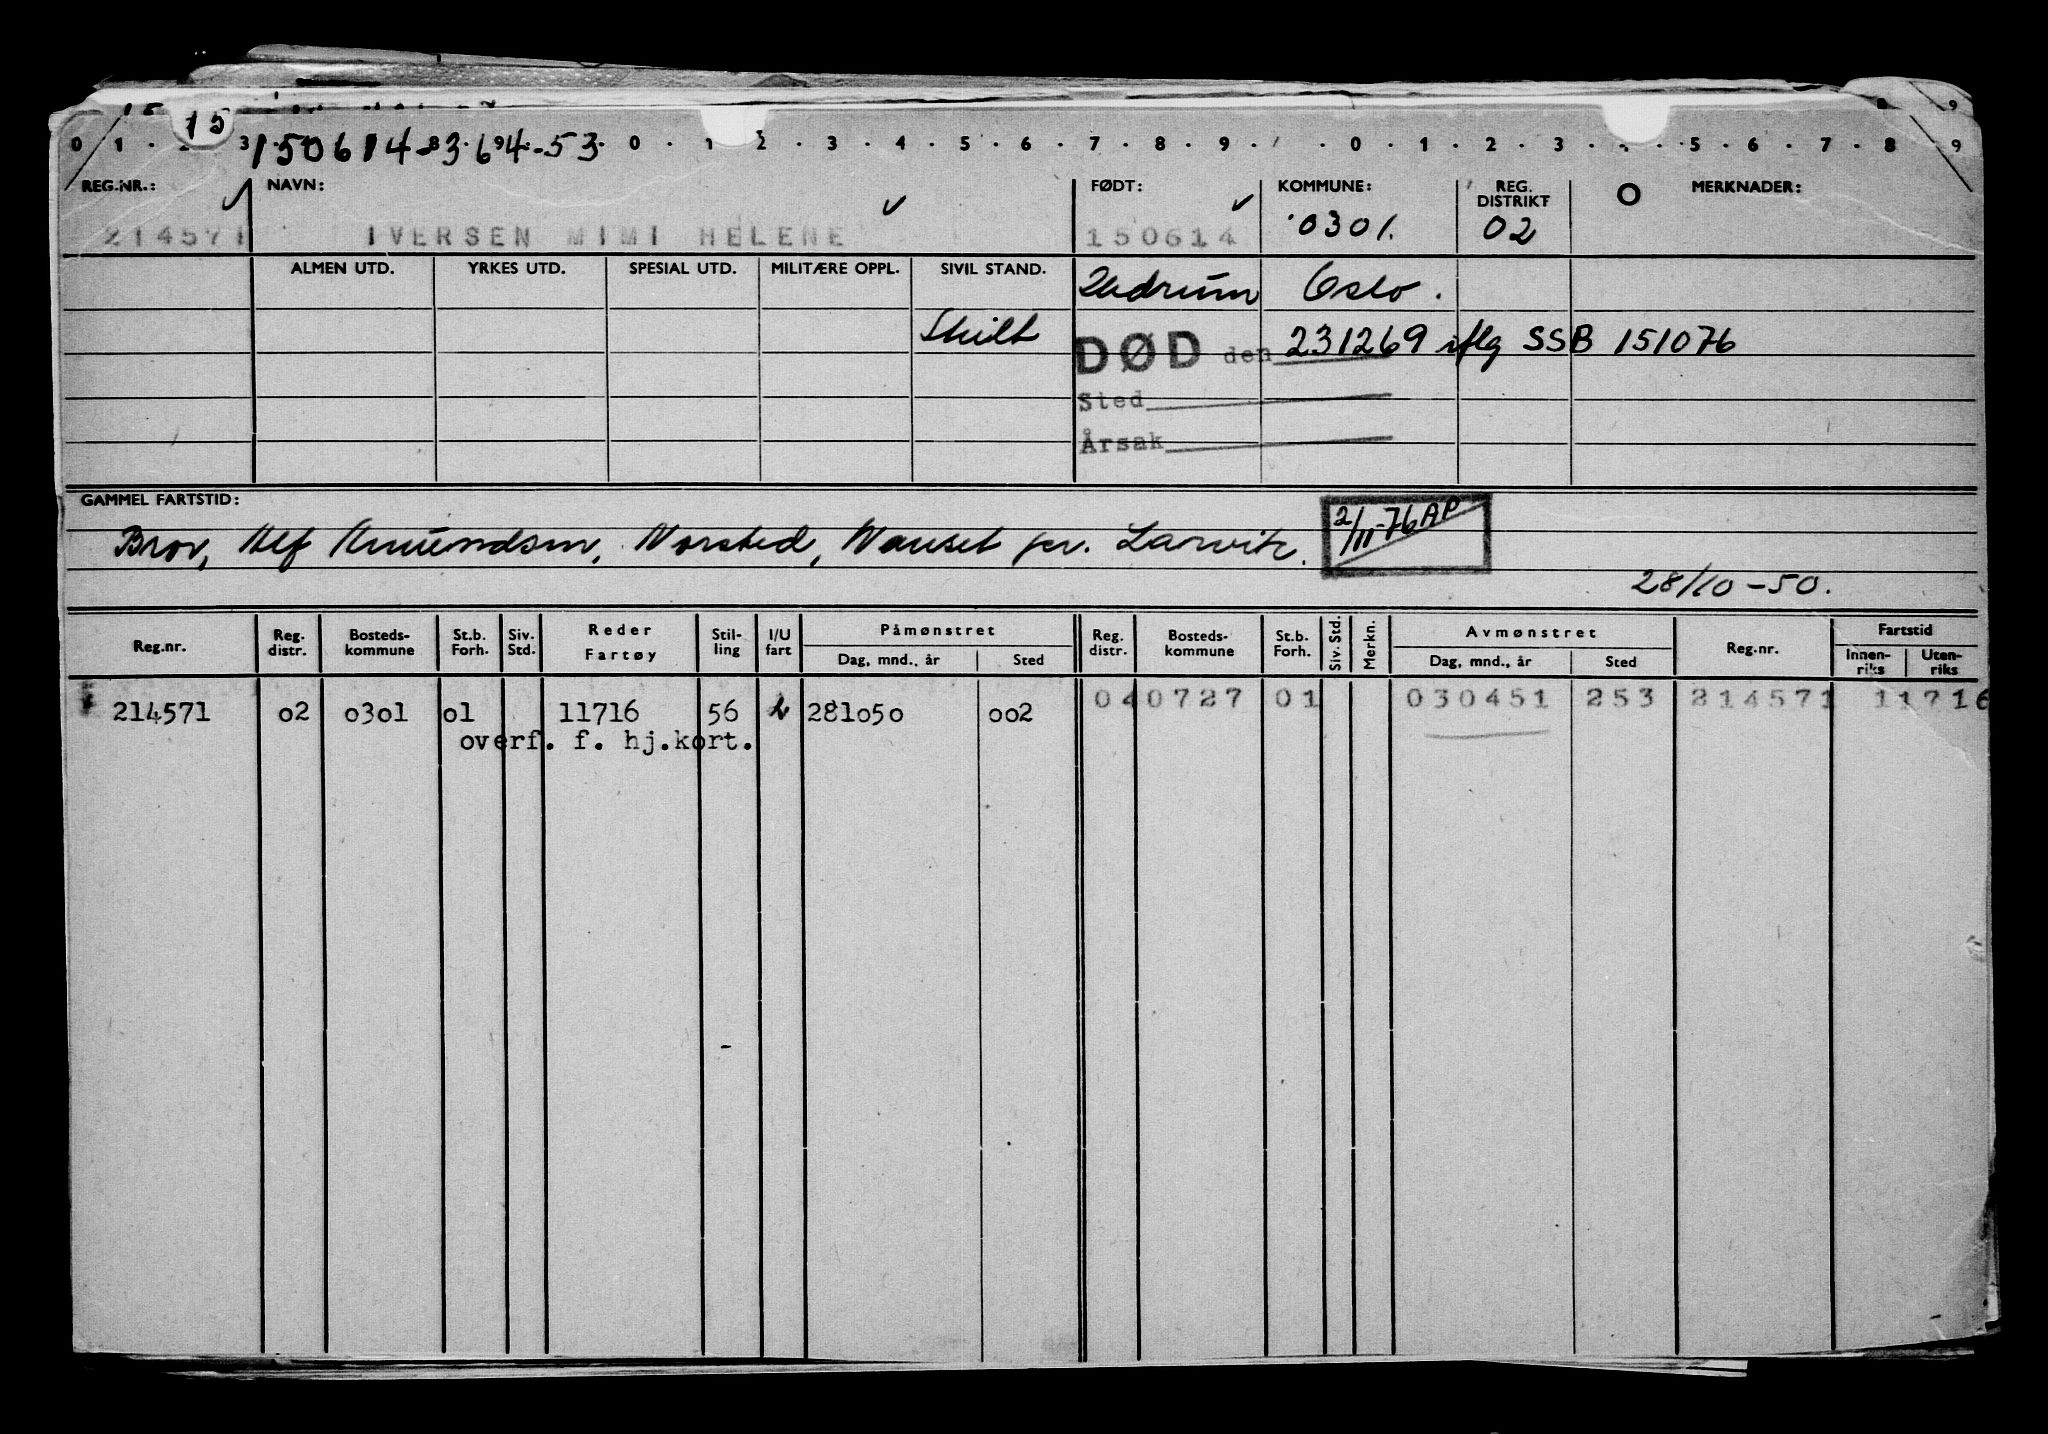 15
150614 83694-53
0 1 2 3 0 1 2 3 4 5 6 7 8 9 0 1 2 3 5 6 7 8 9
REG.NR.: NAVN: FØDT: KOMMUNE: REG. DISTRIKT MERKNADER:
214571 IVERSEN MIMI HELENE 150614 0301. 02
ALMEN UTD. YRKES UTD. SPESIAL UTD. MILITÆRE OPPL. SIVIL STAND. Hedrum Oslo.
Skilt DØD den 231269 iflg SSB 151076
Sted
Årsak
GAMMEL FARTSTID:
2/11-76 AP
Bror, Alf Amundsen, Norsted, Nauset pr. Larvik.
28/10-50.
Reg.nr. Reg. distr. Bosteds-kommune St.b. Forh. Siv. Std. Reder Fartøy Stil-ling I/U fart Påmønstret Dag, mnd., år Sted Reg. distr. Bosteds-kommune St.b. Forh. Siv. Std. Merkn. Avmønstret Dag, mnd., år Sted Reg.nr. Fartstid Innen-riks Uten-riks
214571 02 0301 01 11716 56 2 281050 002 040727 01 030451 253 214571 11716
overf. f. hj.kort.